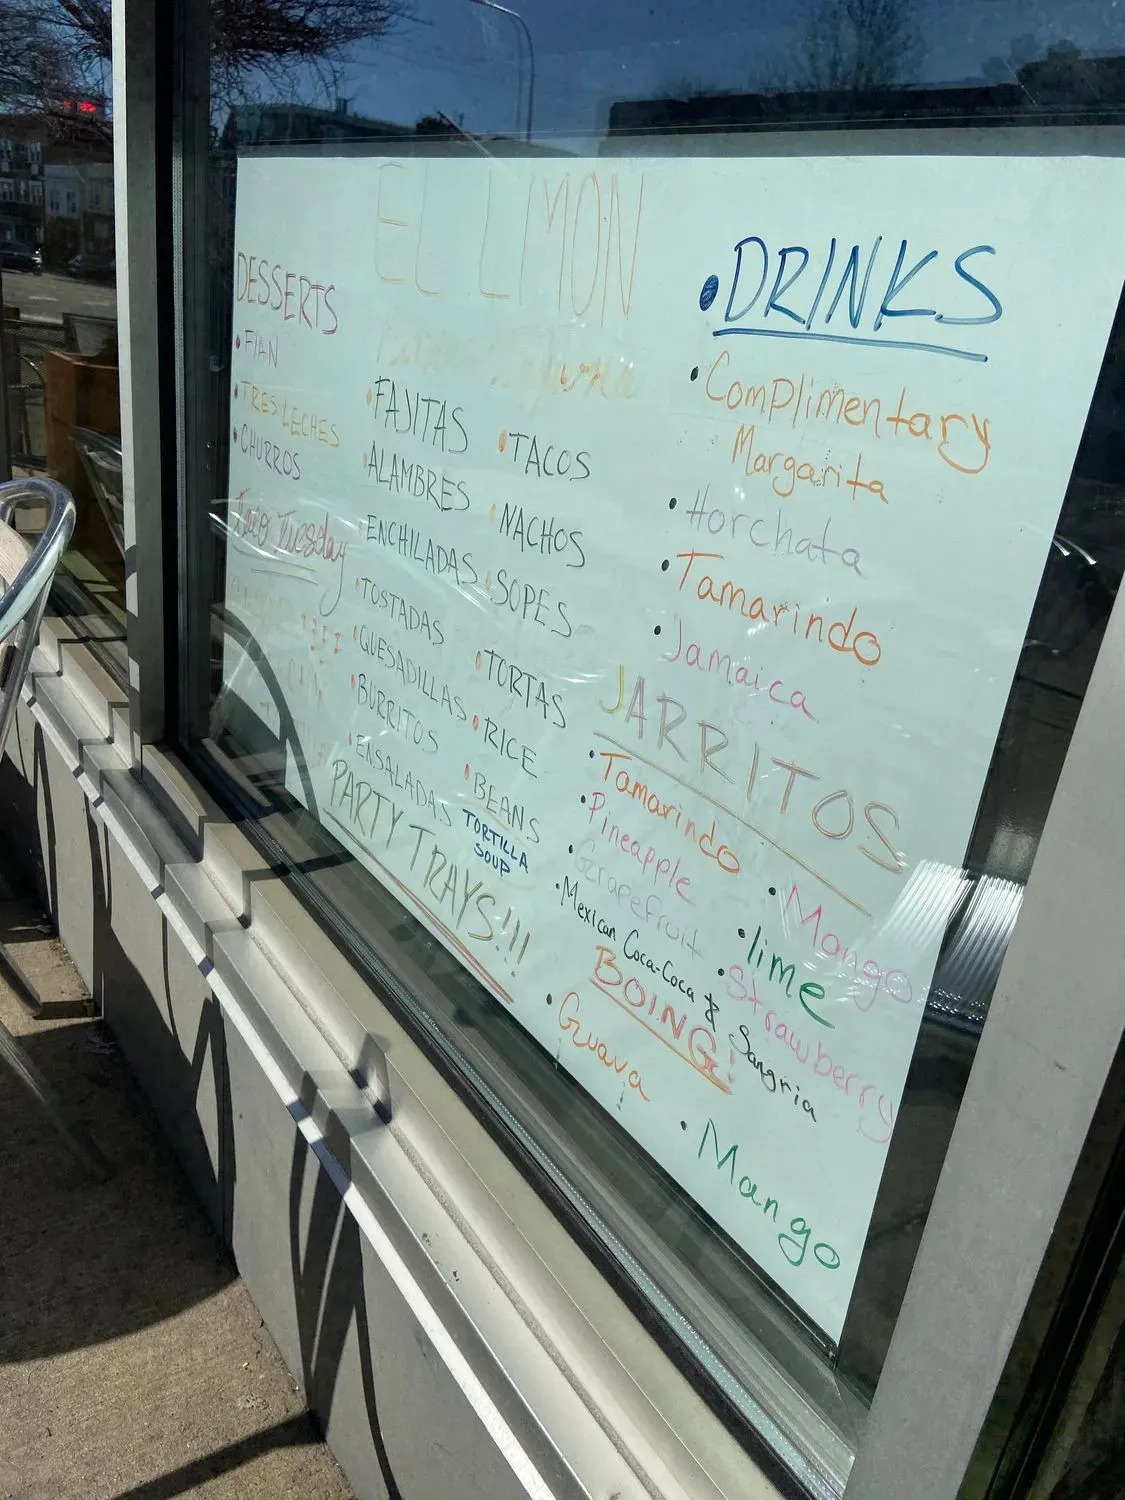 EL LIMON
DESSERTS
• FlAN
• TRES LECHES
• CHURROS
Taco Tuesday
• FAJITAS
• ALAMBRES
• ENCHILADAS
• TOSTADAS
• QUESADILLAS
• BURRITOS
• ENSALADAS
• TACOS
• NACHOS
• SOPES
• TORTAS
• RICE
• BEANS
TORTILLA
SOUP
PARTY TRAYS!!!
• DRINKS
• Complimentary
Margarita
• Horchata
• Tamarindo
• Jamaica
JARRITOS
• Tamarindo
• Pineapple
• Grapefruit
• Mexican Coca-Coca & Sangria
• Mango
• lime
• Strawberry
BOING!
• Guava
• Mango